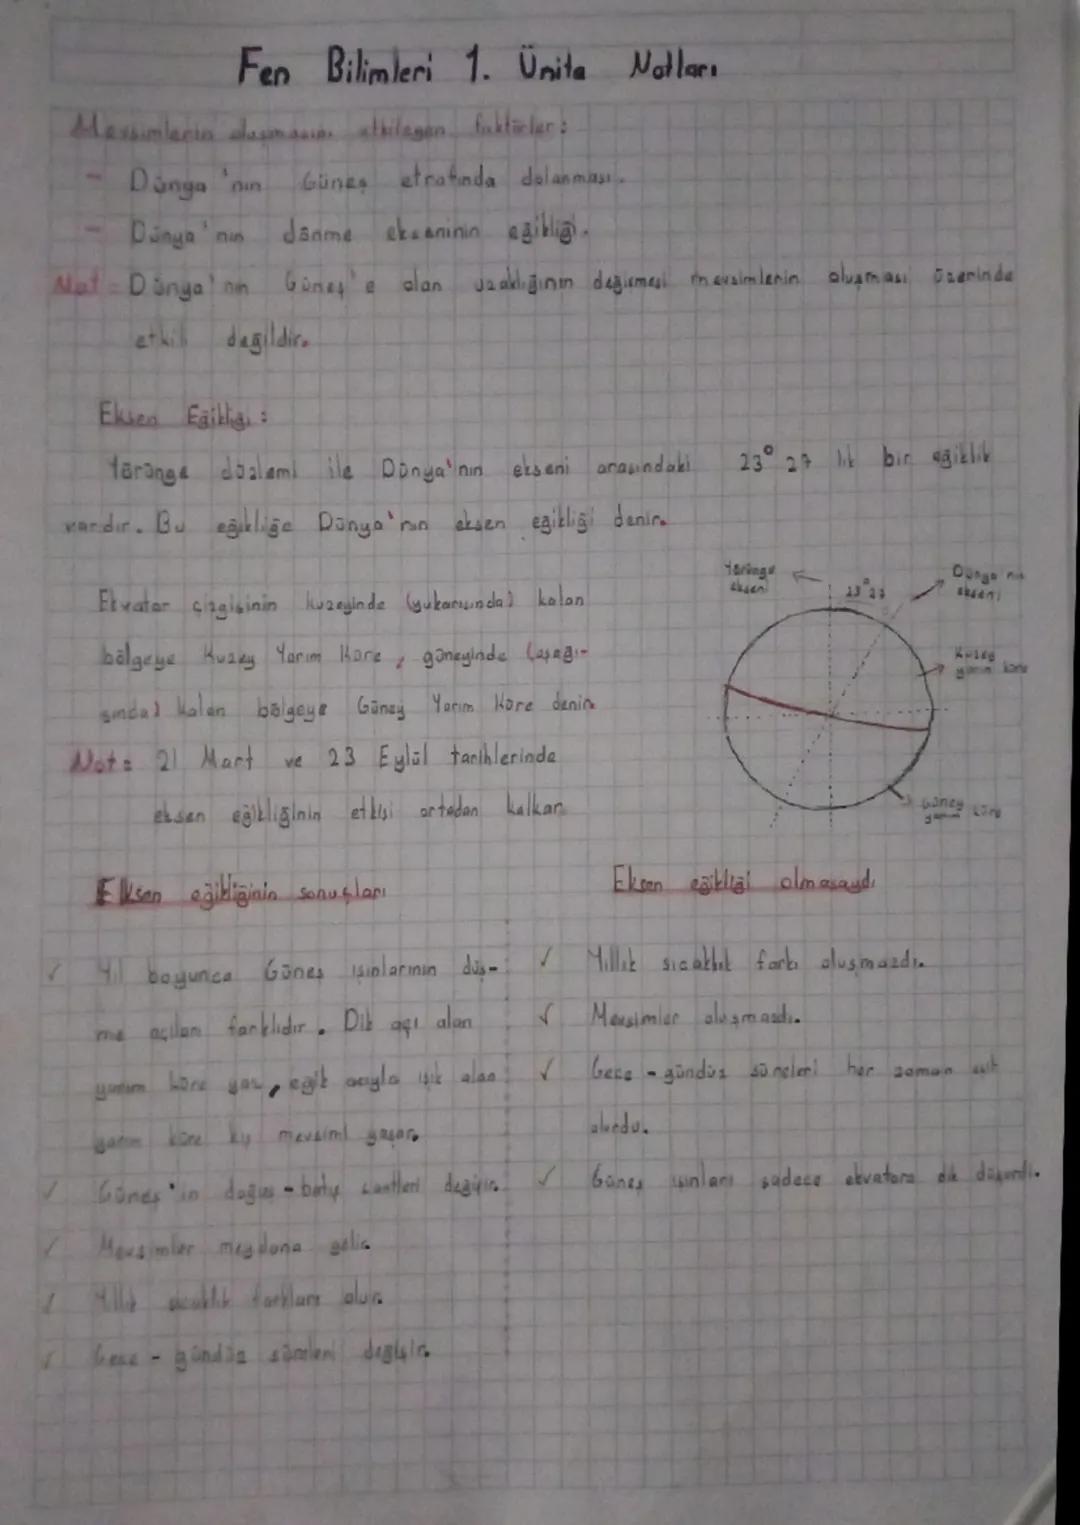 Fen Bilimleri 1. Ünite Notları
Mevsimlerin oluşmasını etkileyen faktörler:
- Dünya'nın Güneş etrafında dolanması.
- Dünya'nın dönme ekseninin eğikliği.
Not: Dünya'nın Güneş'e olan uzaklığının değişmesi mevsimlerin oluşması üzerinde
etkili değildir.
Eksen Eğikliği:
Yörünge düzlemi ile Dünya'nın ekseni arasındaki 23° 27 lık bir eğiklik
vardır. Bu eğikliğe Dünya'nın eksen eğikliği denir.
Ekvator çizgisinin kuzeyinde (yukarısında) kalan
bölgeye Kuzey Yarım Küre, güneyinde (aşağı-
sında) kalan bölgeye Güney Yarım Küre denir.
Not: 21 Mart ve 23 Eylül tarihlerinde
eksen eğikliğinin etkisi ortadan kalkar.
Yörünge
ekseni
23° 27
Dünya'nın
ekseni
Kuzey
yarım küre
Güney
yarım küre
Eksen eğikliğinin sonuçları
✓ Yıl boyunca Güneş ışınlarının düş-
me açıları farklıdır. Dik açı alan
yarım küre yaz, eğik açıyla ışık alan
yarım küre kış mevsimi yaşar.
✓ Güneş'in doğuş-batış saatleri değişir.
✓ Mevsimler meydana gelir.
✓ Yıllık sıcaklık farkları olur.
✓ Gece - gündüz süreleri değişir.
Eksen eğikliği olmasaydı
✓ Yıllık sıcaklık farkı oluşmazdı.
✓ Mevsimler oluşmazdı.
✓ Gece - gündüz süreleri her zaman eşit
olurdu.
✓ Güneş ışınları sadece ekvatora dik düşerdi.